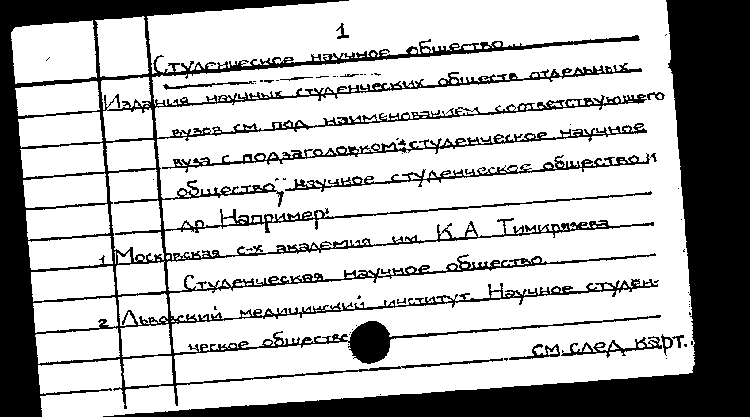 1
Студенческое научное общество...
Издания научных студенческих обществ отдельных
вузов см. под наименованием соответствующего
вуза с подзаголовком: студенческое научное
общество", научное студенческое общество и
др. Например:
1 Московская с-х академия им. К.А. Тимирязева
Студенческая научное общество.
2 Львовский медицинский институт. Научное студен-
ческое общество
см. след. карт.